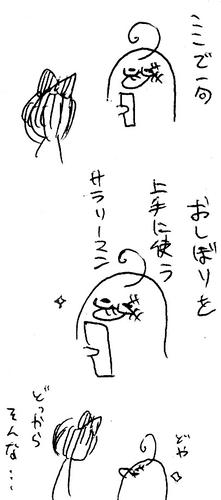 ここで一句
おしぼりを
上手に使う
サラリーマン
どや
どっから
そんな…